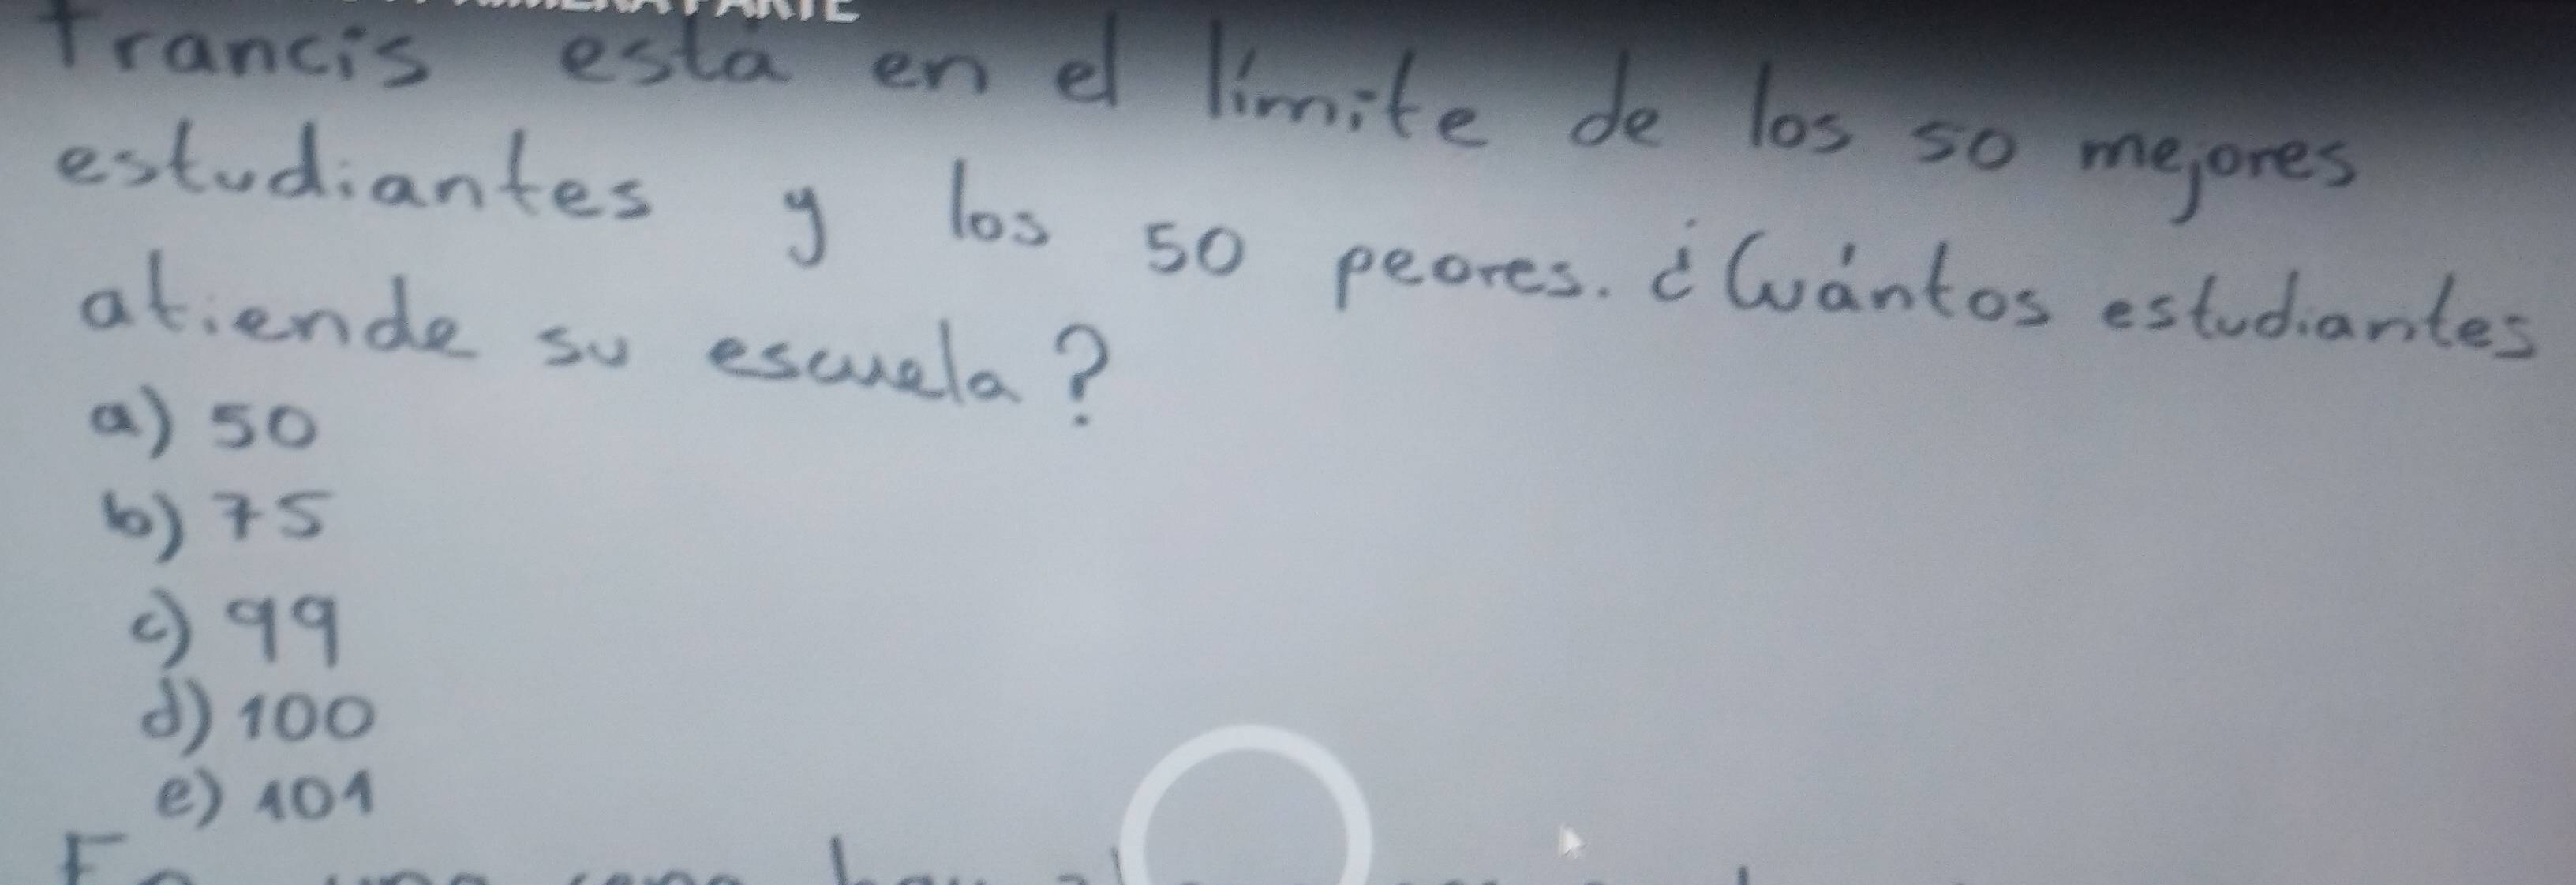 PRIMERA PARTE
Francis está en el límite de los 50 mejores
estudiantes y los 50 peores. ¿Cuántos estudiantes
atiende su escuela?
a) 50
b) 75
c) 99
d) 100
e) 101
En una cena hay